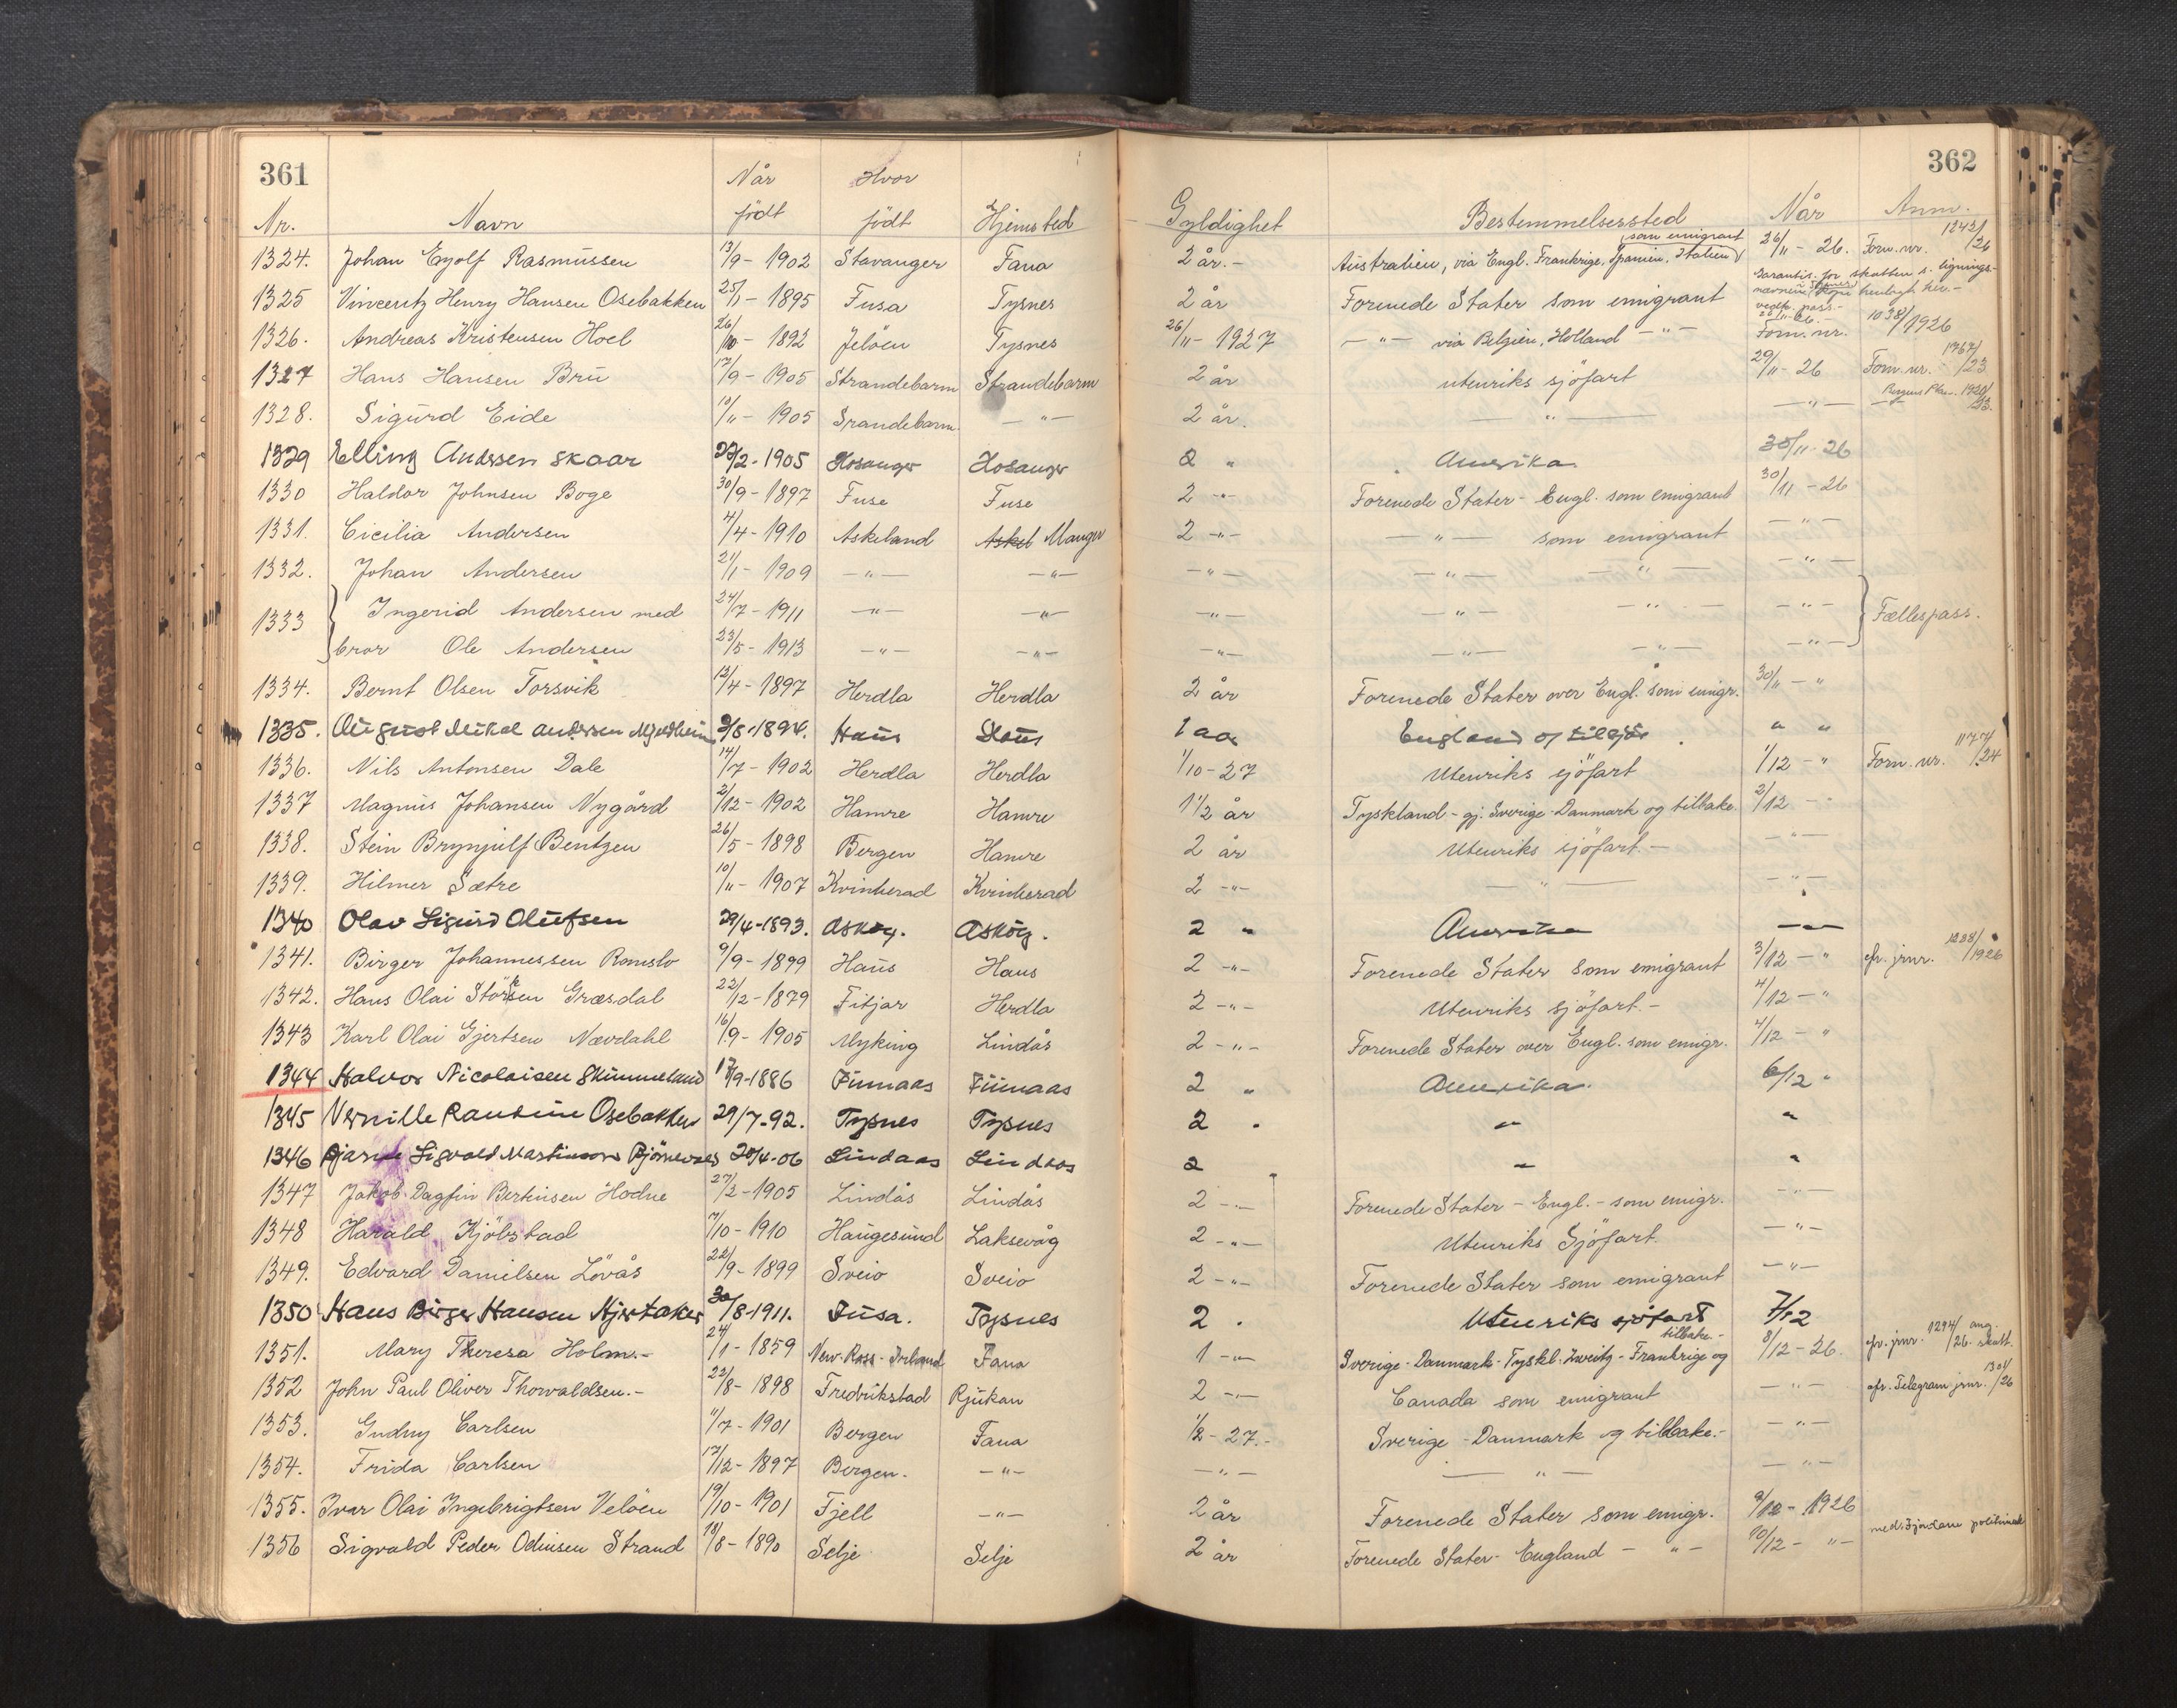 361 362
Når Hvor
Nr. Navn födt födt Hjemsted Gyldighet Bestemmelsessted Når Anm.
som emigrant 1242/26
1324. Johan Eyolf Rasmussen 13/9 - 1902 Stavanger Fana 2 år.- Australien, via Engl. Frankrige, Spanien, Italien 26/11 - 26. Forn. nr.
Garantis. for skatten s. lignings-
1325 Vincentz Henry Hansen Osebakken 25/1 - 1895 Fusa Tysnes 2 år Forenede Stater som emigrant
26/11-26.
1326. Andreas Kristensen Hoel 26/10 - 1892 Jelöen Tysnes 26/11 - 1927 — " — via Belgien, Holland — " — Forn. nr. 1038/1926
1327 Hans Hansen Bru 17/9 - 1905 Strandebarm Strandebarm 2 år utenriks sjöfart 29/11 - 26 Forn. nr. 1767/23
1328. Sigurd Eide 10/11 - 1905 Srandebarm. — " — 2 år. — " — — " —
1329 Elling Andersen Skaar 27/2 - 1905 Hosanger Hosanger 2 " Amerika. 30/11-26
1330 Haldor Johnsen Boge 30/9 - 1897 Fuse Fuse 2 -"- Forenede Stater - Engl. som emigrant 30/11 - 26
1331. Cicilia Andersen 4/4 - 1910 Askeland Askel Manger 2 -"- — " — som emigrant — " —
1332. Johan Andersen 21/1 - 1909 — " — — " — — " — — " — — " — — " —
1333 Ingerid Andersen med 24/7 - 1911 — " — — " — — " — — " — — " — — " — Fællespass.
bror Ole Andersen 23/5 - 1913 — " — — " — — " — — " — — " — — " —
1334. Bernt Olsen Torsvik 12/4 - 1897 Herdla Herdla 2 år Forenede Stater over Engl. som emigr. 30/11 - "
1335. August Mikal Andersen Mjeldheim 2/8-1894. Haus Haus 1 aar England og tilsjös. " "
1336. Nils Antonsen Dale 14/7 - 1902 Herdla Herdla 1/10 - 27 Utenriks sjöfart 1/12 - " Forn. nr. 1177/24
1337 Magnus Johansen Nygård 2/12 - 1902 Hamre Hamre 1 1/2 år Tyskland - gj. Sverige - Danmark og tilbake 2/12 - "
1338. Stein Brynjulf Bentzen 26/5 - 1898 Bergen Hamre 2 år Utenriks sjöfart.- — " —
1339. Hilmer Sætre 10/11 - 1907 Kvinherad Kvinherad 2 -"- — " — — " —
1340 Olav Sigurd Olufsen 29/4-1893. Asköy. Asköy. 2 " Amerika — " —
1341. Birger Johannessen Romslo 9/9 - 1899 Haus Haus 2 -"- Forenede Stater som emigrant 3/12 - " cfr. jrnr. 1288/1926
1342. Hans Olai Störksen Græsdal 22/12 - 1879 Fitjar Herdla 2 -"- Utenriks sjöfart.- 4/12 - "
1343 Karl Olai Gjertsen Nævdahl 16/9 - 1905 Myking Lindås 2 -"- Forenede Stater over Engl. som emigr. 4/12 - "
1344 Halvor Nicolaisen Skimmeland 17/9-1886 Finnaas Finnaas 2 " Amerika. 6/12 "
1345 Pernille Rantine Osebakken 29/7-92. Tysnes Tysnes 2 " " "
1346 Bjarne Sigvald Martinsen Björnevaas 20/4-06 Lindaas Lindaas 2 " "
1347 Jakob Dagfin Bertinsen Hodne 27/2 - 1905 Lindås Lindås 2 -"- Forenede Stater - Engl. - som emigr. — " —
1348 Harald Kjöbstad 7/10 - 1910 Haugesund Laksevåg 2 -"- Utenriks Sjöfart. — " —
1349. Edvard Danielsen Lövås 22/9 - 1899 Sveio Sveio 2 -"- Forenede Stater som emigrant — " —
1350 Hans Birger Hansen Hjertaker 30/8-1911. Fusa. Tysnes 2 . Utenriks sjöfart 7/12
tilbake.-
1351. Mary Theresa Holm.- 24/1 - 1859 New-Ross - Irland Fana 1 -"- Sverige - Danmark - Tyskl. Zweitz - Frankrige og 8/12 - 26. cfr. jrnr. 1294/26 ang. skatt.
1352 John Paul Oliver Thorvaldsen.- 22/8 - 1898 Fredrikstad Rjukan 2 -"- Canada som emigrant — " — cfr. Telegram jrnr. 1304/26
1353. Gudny Carlsen 11/7 - 1901 Bergen Fana 1/2 - 27.- Sverige - Danmark og tilbake.- — " —
1354. Frida Carlsen 17/12 - 1897 Bergen. — " — — " — — " — — " —
1355. Ivar Olai Ingebrigtsen Velöen 19/10 - 1901 Fjell — " — 2 år Forenede Stater som emigr. 9/12 - 1926
1356 Sigvald Peder Odinsen Strand 18/8 - 1890 Selje Selje 2 år Forenede Stater - England — " — 10/12 - " —